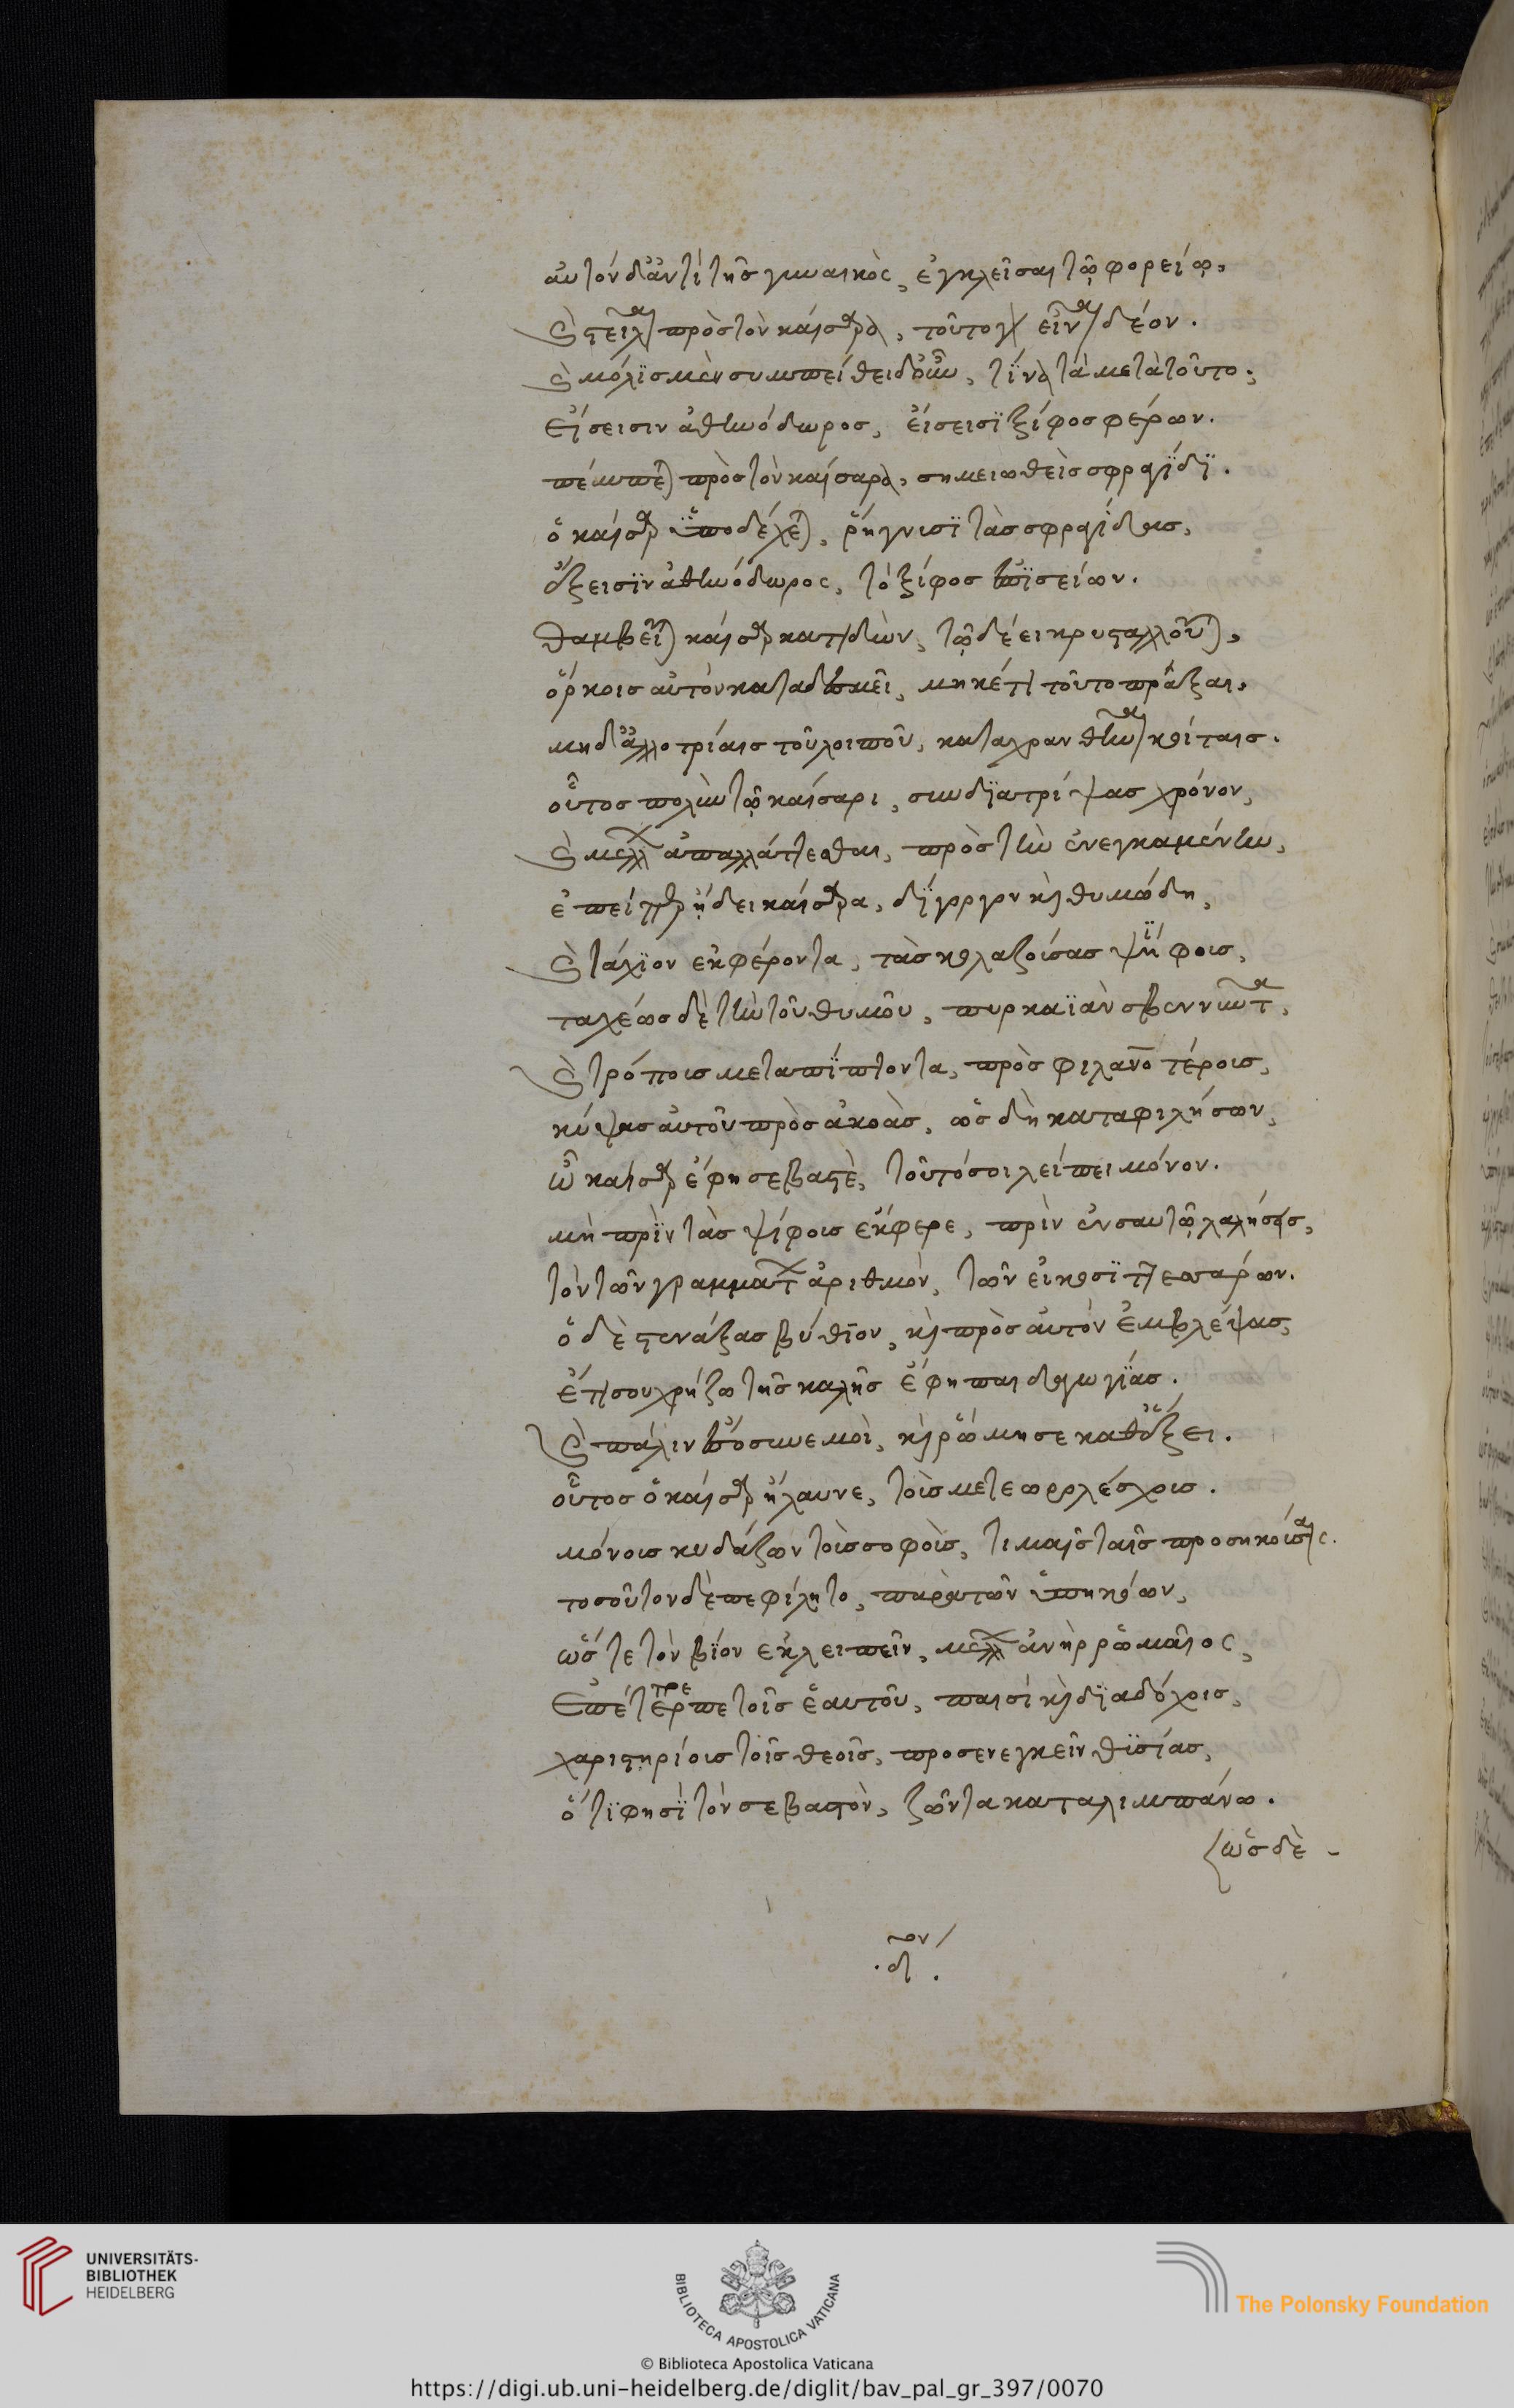 αὐτὸν δ' ἀντὶ τῆς γυναικὸς, ἐγκλεῖσαι τῷ φορείῳ,
καὶ στεῖλαι πρὸς τὸν καίσαρα, τοῦτο γὰρ εἶναι δέον.
καὶ μόλϊς μὲν συμπείθει δ' οὖν, τίνα τὰ μετὰ τοῦτο;
εἴσεισιν ἀθηνόδωρος, εἴσεισϊ ξίφος φέρων.
πέμπεται πρὸς τὸν καίσαρα, σημειωθεὶς σφραγίδϊ.
ὁ καίσαρ ὑποδέχεται, ῥήγνισϊ τὰς σφραγίδας,
ἔξεισϊν ἀθηνόδωρος, τὸ ξίφος ἐπϊσείων.
θαμβεῖται καίσαρ κατιδὼν, τῷ δέει κρυσταλλοῦται,
ὅρκοις αὐτὸν καταδεσμεῖ, μηκέτι τοῦτο πρᾶξαι,
μὴ δ' ἀλλοτρίαις τοῦ λοιποῦ, καταχρανθῆναι κοίταις.
οὗτος πολὺν τῷ καίσαρι, συνδϊατρίψας χρόνον,
καὶ μέλλων ἀπαλλάττεσθαι, πρὸς τὴν ἐνεγκαμένην,
ἐπείπερ ᾔδει καίσαρα, δϊγοργον καὶ θυμώδη,
καὶ τάχϊον ἐκφέροντα, τὰς κολαζούσας ψήφους,
ταχέως δὲ τὴν τοῦ θυμοῦ, πυρκαϊὰν σβεννύντα,
καὶ τρόποις μεταπίπτοντα, πρὸς φιλανοτέροις,
κύψας αὐτοῦ πρὸς ἀκοὰς, ὡς δὴ καταφιλήσων,
ὦ καίσαρ ἔφη σεβαστὲ, τοῦτό σοι λείπει μόνον.
μὴ πρὶν τὰς ψήφους ἔκφερε, πρὶν ἐν σαυτῷ λαλήσῃς,
τὸν τῶν γραμμάτων ἀριθμὸν, τῶν εἰκοσϊ τεσσάρων.
ὁ δὲ στενάξας βύθϊον, καὶ πρὸς αὐτὸν ἐμβλέψας,
ἔτι σου χρήζω τῆς καλῆς ἔφη παιδαγωγίας.
καὶ πάλιν ἔσο σὺν ἐμοὶ, καὶ ῥώμη σε καθέξει.
οὗτος ὁ καίσαρ ἤλαυνε, τοὺς μετεωρολέσχους.
μόνους κυδάζων τοὺς σοφοὺς, τιμαῖς ταῖς προσηκούσαις.
τοσοῦτον δὲ πεφίλητο, παρὰ τῶν ὑπηκόων,
ὥστε τὸν βϊον ἐκλειπεῖν, μέλλων ἀνὴρ ῥωμαῖος,
ἐπέτρεπε τοῖς ἑαυτοῦ, παισὶ καὶ δϊαδόχοις,
χαριστηρίους τοῖς θεοῖς, προσενεγκεῖν θϋσίας,
ὅτϊ φησϊ τὸν σεβαστὸν, ζῶντα καταλιμπάνω.
ὡς δὲ
.δον.
UNIVERSITÄTS-
BIBLIOTHEK
HEIDELBERG
BIBLIOTECA APOSTOLICA VATICANA
The Polonsky Foundation
© Biblioteca Apostolica Vaticana
https://digi.ub.uni-heidelberg.de/diglit/bav_pal_gr_397/0070